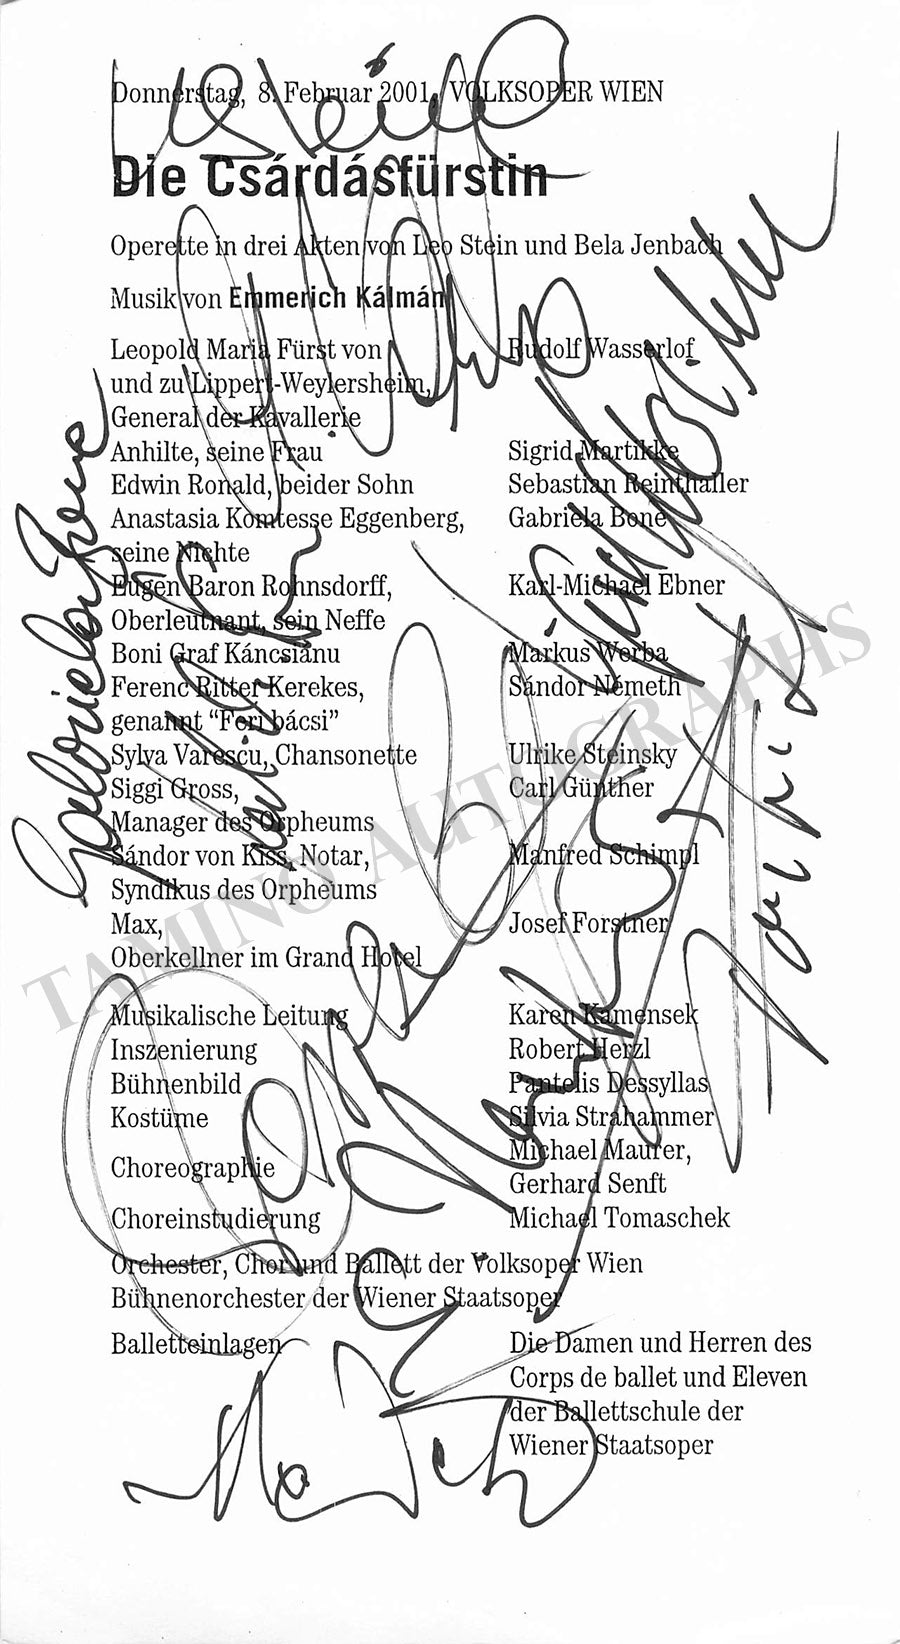 Donnerstag, 8. Februar 2001, VOLKSOPER WIEN
Die Csárdásfürstin
Operette in drei Akten von Leo Stein und Bela Jenbach
Musik von Emmerich Kálmán
Leopold Maria Fürst von Rudolf Wasserlof
und zu Lippert-Weylersheim,
General der Kavallerie
Anhilte, seine Frau Sigrid Martikke
Edwin Ronald, beider Sohn Sebastian Reinthaller
Anastasia Komtesse Eggenberg, Gabriela Bone
seine Nichte
Eugen Baron Rohnsdorff, Karl-Michael Ebner
Oberleutnant, sein Neffe
Boni Graf Káncsianu Markus Werba
Ferenc Ritter Kerekes, Sándor Németh
genannt “Feri bácsi”
Sylva Varescu, Chansonette Ulrike Steinsky
Siggi Gross, Carl Günther
Manager des Orpheums
Sándor von Kiss, Notar, Manfred Schimpl
Syndikus des Orpheums
Max, Josef Forstner
Oberkellner im Grand Hotel
Musikalische Leitung Karen Kamensek
Inszenierung Robert Herzl
Bühnenbild Pantelis Dessyllas
Kostüme Silvia Strahammer
Choreographie Michael Maurer,
Gerhard Senft
Choreinstudierung Michael Tomaschek
Orchester, Chor und Ballett der Volksoper Wien
Bühnenorchester der Wiener Staatsoper
Balletteinlagen Die Damen und Herren des
Corps de ballet und Eleven
der Ballettschule der
Wiener Staatsoper
Gabriela Bone
TAMINO AUTOGRAPHS